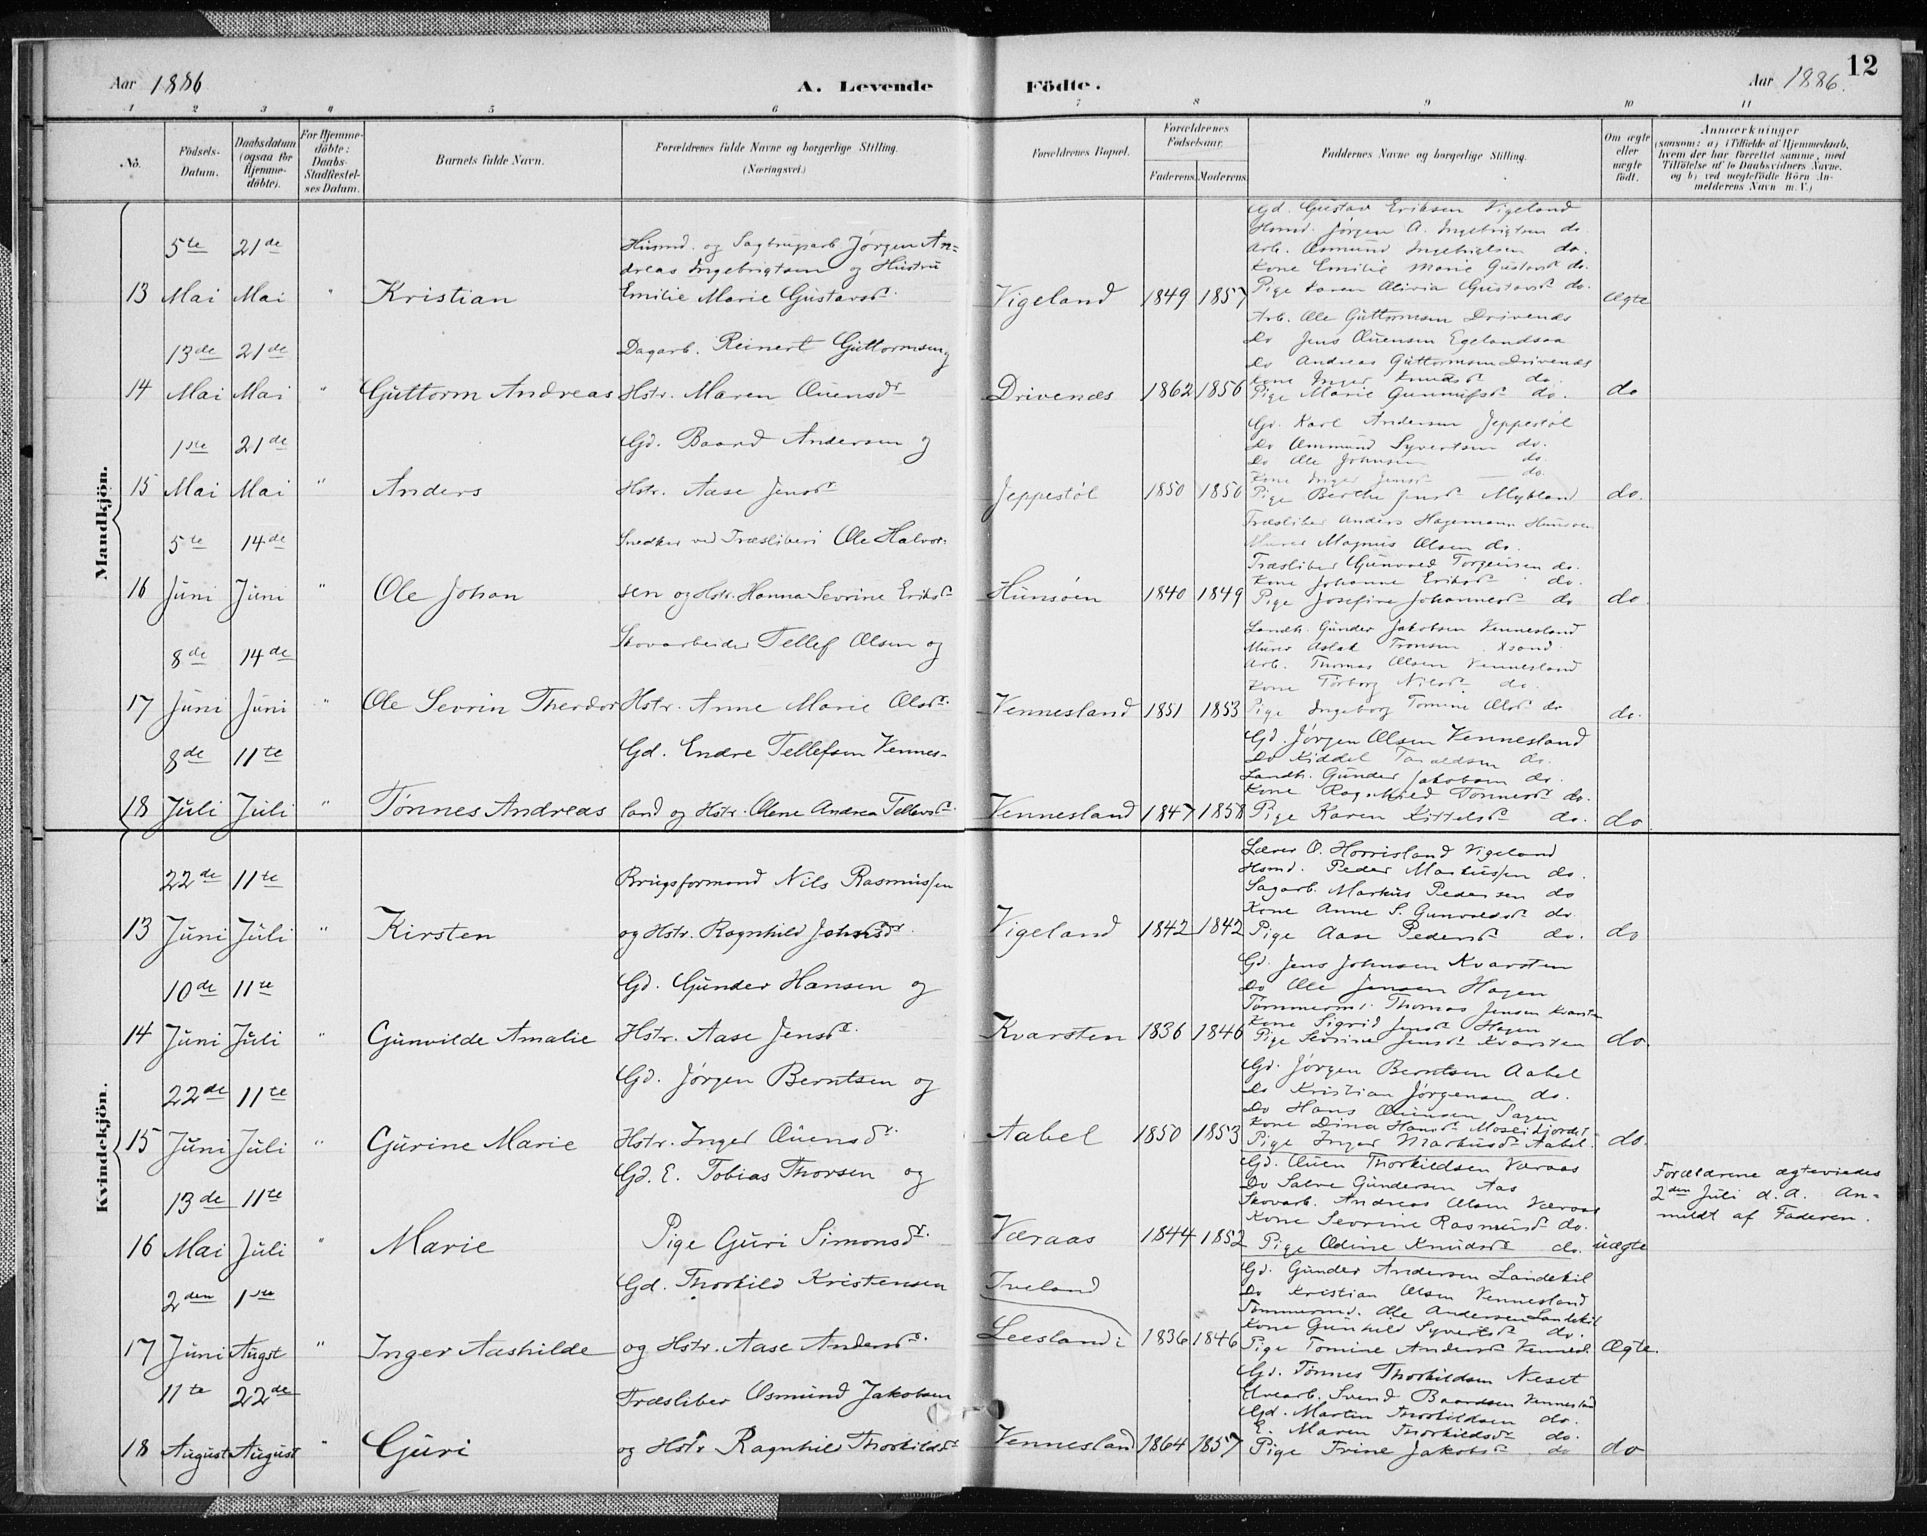 Aar 1886
A. Levende Födte.
Aar 1886.
12
1 2 3 4 5 6 7 8 9 10 11
No.
Födsels-Datum.
Daabsdatum (ogsaa for Hjemmedöbte).
For Hjemmedöbte: Daabs-Stadfæstelses Datum.
Barnets fulde Navn.
Forældrenes fulde Navne og borgerlige Stilling. (Næringsvei.)
Forældrenes Bopæl.
Forældrenes Födselsaar.
Faderens. Moderens.
Faddernes Navne og borgerlige Stilling.
Om ægte eller uægte födt.
Anmærkninger
(saasom: a) i Tilfælde af Hjemmedaab, hvem der har forrettet samme, med Tilföielse af to Daabsvidners Navne, og b) ved uegtefödte Börn Anmelderens Navn m. V.)
Mandkjön.
13 5te Mai 21de Mai " Kristian
Husmd. og Sagbrugsarb. Jørgen An-
dreas Ingebrigtsen og Hustru
Emilie Marie Gustavsdr.
Vigeland 1849 1857
Gd. Gustav Eriksen Vigeland
Husmd. Jørgen A. Ingebrigtsen do.
Arb. Osmund Ingebrigtsen do.
Kone Emilie Marie Gustavsdr do.
Pige Karen Olivia Gustavsdr do.
Ægte
14 13de Mai 21de Mai " Guttorm Andreas
Dagarb. Reinert Guttormsen og
Hstr. Maren Auensdr
Drivenæs 1862 1856
Arb. Ole Guttormsen Drivenæs
Do Jens Auensen Egelandsaa
Do Andreas Guttormsen Drivenæs
Kone Inger Knudsdr do.
Pige Marie Gunnufsdr do.
do
15 1ste Mai 21de Mai " Anders
Gd. Baard Andersen og
Hstr. Aase Jensdr
Jeppestøl 1850 1850
Gd. Karl Andersen Jeppestøl
Do Aanmund Syvertsen do.
Do Ole Johnsen do.
Kone Inger Jensdr do.
Pige Berthe Jensdr Mykland
do.
16 5te Juni 14de Juni " Ole Johan
Snedker ved Træsliberi Ole Halvor-
sen og Hstr. Hanna Sevrine Eriksdr
Hunsøen 1840 1849
Træsliber Anders Hagemann Hunsøen
Murer Magnus Olsen do.
Træsliber Gunvald Torgeirsen do.
Kone Johanne Eriksdr do.
Pige Josefine Johannesdr do
do.
17 8de Juni 14de Juni " Ole Sevrin Theodor
Skovarbeider Tellef Olsen og
Hstr. Anne Marie Olsdr.
Vennesland 1851 1853
Landh. Gunder Jakobsen Vennesland
Murer Aslak Tronsen Xsand
Arb. Thomas Olsen Vennesland
Kone Torborg Nilsdr do.
Pige Ingeborg Tomine Olsdr do
do.
18 8de Juli 11te Juli " Tønnes Andreas
Gd. Endre Tellefsen Vennes-
land og Hstr. Olene Andrea Tellevsdr.
Vennesland 1847 1858
Gd. Jørgen Olsen Vennesland
Do Kiddel Taraldsen do.
Landh. Gunder Jakobsen do.
Kone Ragnhild Tønnesdr do.
Pige Karen Kittelsdr do.
do
Kvindekjön.
13 22de Juni 11te Juli " Kirsten
Brugsformand Nils Rasmussen
og Hstr. Ragnhild Johnsdr.
Vigeland 1842 1842
Lærer O. Horrisland Vigeland
Husmd. Peder Markussen do.
Sagarb. Markus Pedersen do
Kone Anne S. Gunvaldsdr do
Pige Aase Pedersdr do.
do
14 10de Juni 11te Juli " Gunvilde Amalie
Gd. Gunder Hansen og
Hstr. Aase Jensdr.
Kvarsten 1836 1846
Gd. Jens Johnsen Kvarsten
Do Ole Jensen Hagen
Tømmermd. Thomas Jensen Kvarsten
Kone Sigrid Jensdr Hagen
Pige Sevrine Jensdr Kvarsten
do.
15 22de Juni 11te Juli " Gurine Marie
Gd. Jørgen Berntsen og
Hstr. Inger Auensdr.
Aabel 1850 1853
Gd. Jørgen Berntsen Aabel
Do Kristian Jørgensen do.
Do Hans Auensen Sagen
Kone Dina Hansdr Moseidjordet
Pige Inger Markusdr Aabel
do.
16 13de Mai 11te Juli " Marie
Gd. E. Tobias Thorsen og
Pige Guri Simonsdr.
Væraas 1844 1852
Gd. Auen Thorkildsen Væraas
Do Salve Gundersen Aas
Skovarb. Andreas Olsen Væraas
Kone Sevrine Rasmusdr do.
Pige Odine Knudsdr do.
uægte
Forældrene ægteviedes
2den Juli d. A. An-
meldt af Faderen.
17 2den Juni 1ste Augst " Inger Aashilde
Gd. Thorkild Kristensen
og Hstr. Aase Andersdr.
Iveland
Leesland: 1836 1846
Gd. Gunder Andersen Landekil
Do Kristian Olsen Vennesland
Tømmermd. Ole Andersen Landekil
Kone Gunhild Syvertsdr do.
Pige Tomine Andersdr Vennesl.
Ægte.
18 11te August 22de August " Guri
Træsliber Osmund Jakobsen
og Hstr Ragnhild Thorkildsdr
Vennesland 1864 1857
Gd. Tønnes Thorkildsen Neset
Elvearb. Svend Baardsen Vennesland
Gd. Martin Thorkildsen do.
E. Maren Thorkildsdr do.
Pige Trine Jakobsdr do
do